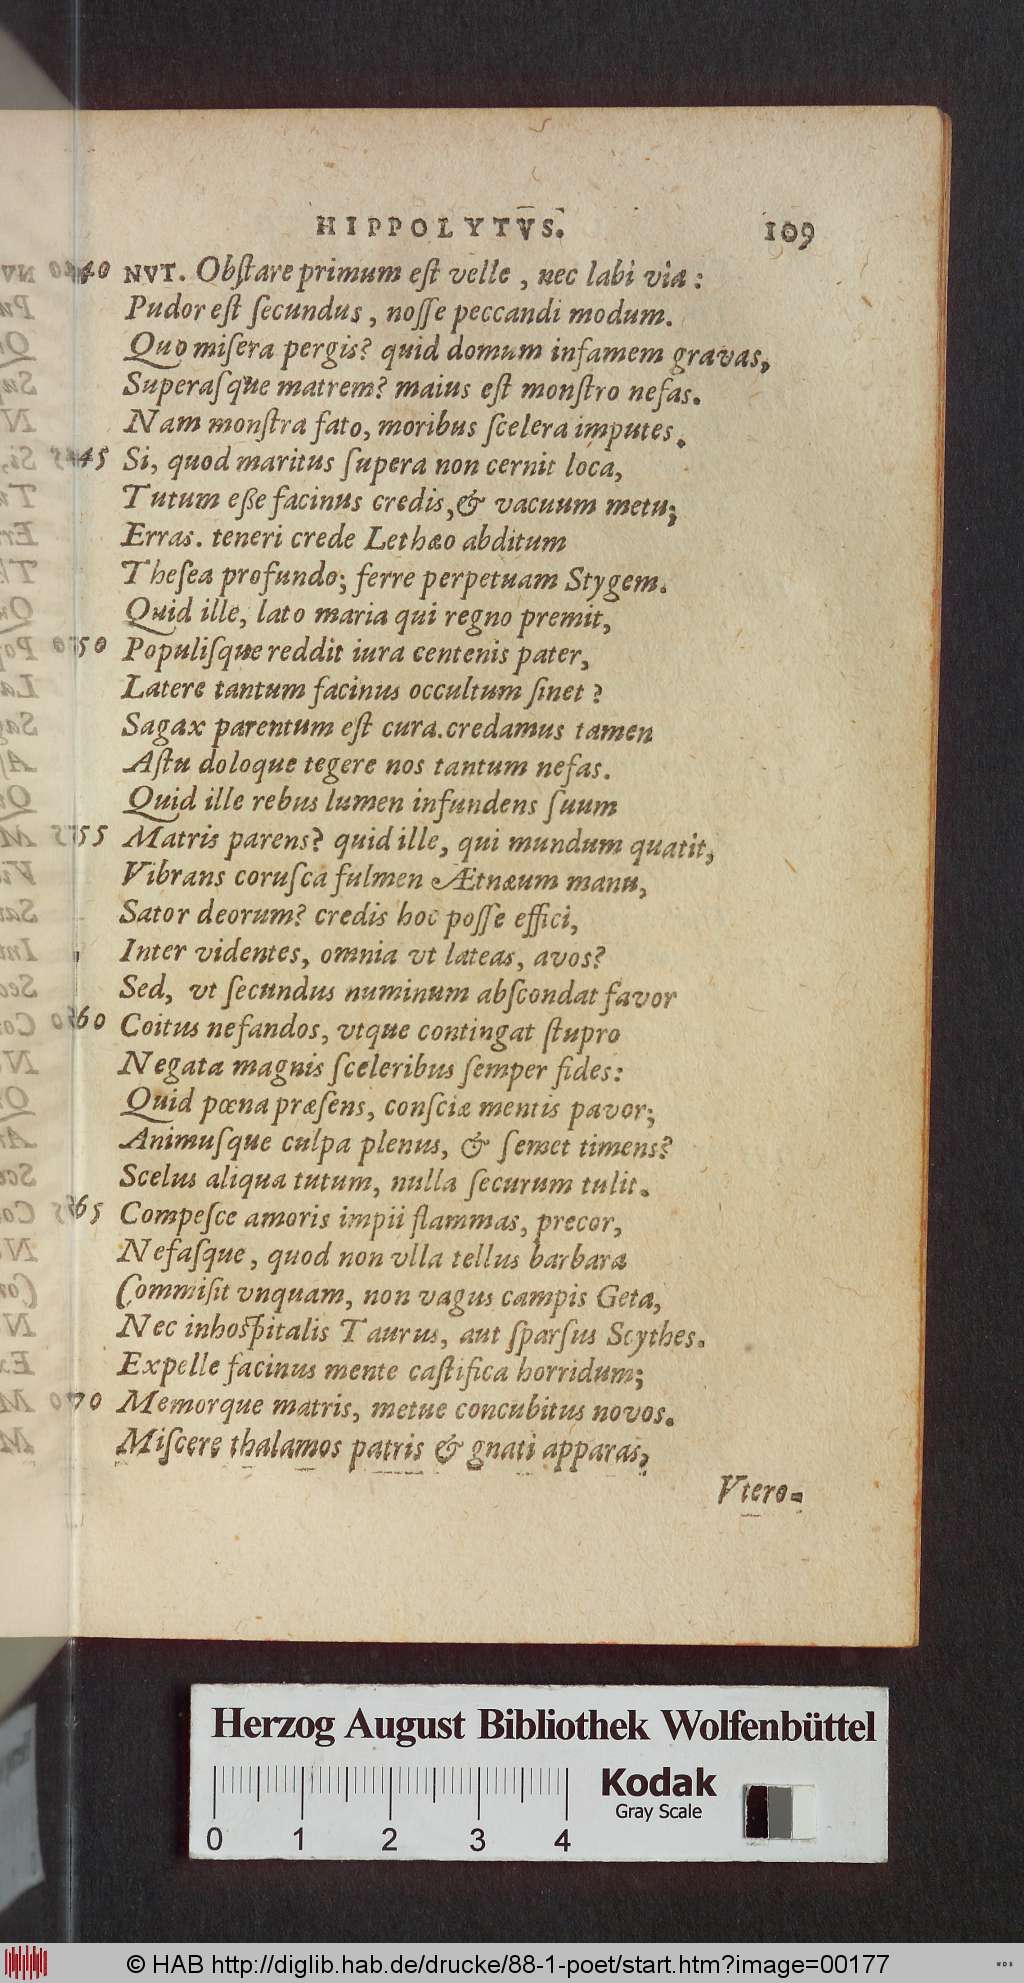 HIPPOLYTVS. 109
40 NVT. Obſtare primum eſt velle, nec labi via:
Pudor eſt ſecundus, noſſe peccandi modum.
Quo miſera pergis? quid domum infamem gravas,
Superaſque matrem? maius eſt monſtro nefas.
Nam monſtra fato, moribus ſcelera imputes.
45 Si, quod maritus ſupera non cernit loca,
Tutum eße facinus credis, & vacuum metu;
Erras. teneri crede Lethæo abditum
Theſea profundo; ferre perpetuam Stygem.
Quid ille, lato maria qui regno premit,
50 Populiſque reddit iura centenis pater,
Latere tantum facinus occultum ſinet?
Sagax parentum eſt cura. credamus tamen
Aſtu doloque tegere nos tantum nefas.
Quid ille rebus lumen infundens ſuum
55 Matris parens? quid ille, qui mundum quatit,
Vibrans coruſca fulmen Ætnæum manu,
Sator deorum? credis hoc poſſe effici,
Inter videntes, omnia vt lateas, avos?
Sed, vt ſecundus numinum abſcondat favor
60 Coitus nefandos, vtque contingat ſtupro
Negata magnis ſceleribus ſemper fides:
Quid pœna præſens, conſciæ mentis pavor;
Animuſque culpa plenus, & ſemet timens?
Scelus aliqua tutum, nulla ſecurum tulit.
65 Compeſce amoris impii flammas, precor,
Nefaſque, quod non vlla tellus barbara
Commiſit vnquam, non vagus campis Geta,
Nec inhoſpitalis Taurus, aut ſparſus Scythes.
Expelle facinus mente caſtifica horridum;
70 Memorque matris, metue concubitus novos.
Miſcere thalamos patris & gnati apparas,
Vtero-
Herzog August Bibliothek Wolfenbüttel
Kodak
Gray Scale
0 1 2 3 4
© HAB http://diglib.hab.de/drucke/88-1-poet/start.htm?image=00177